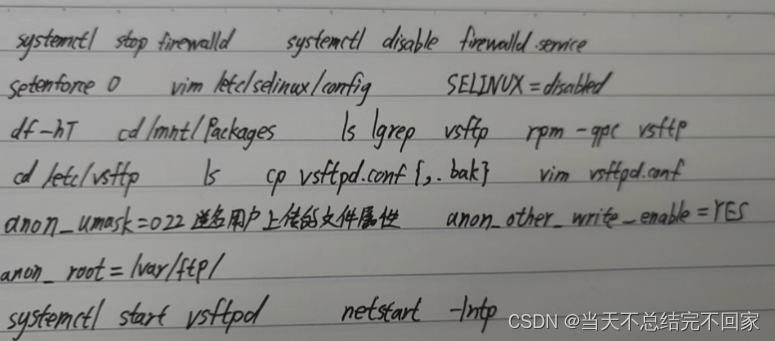 systemctl stop firewalld systemctl disable firewalld.service
setenforce 0 vim /etc/selinux/config SELINUX=disabled
df-hT cd/mnt/Packages ls |grep vsftp rpm -qpc vsftp
cd /etc/vsftp ls cp vsftpd.conf{,.bak} vim vsftpd.conf
anon_umask=022 匿名用户上传的文件属性 anon_other_write_enable=YES
anon_root=/var/ftp/
systemctl start vsftpd netstart -lntp
CSDN @当天不总结完不回家